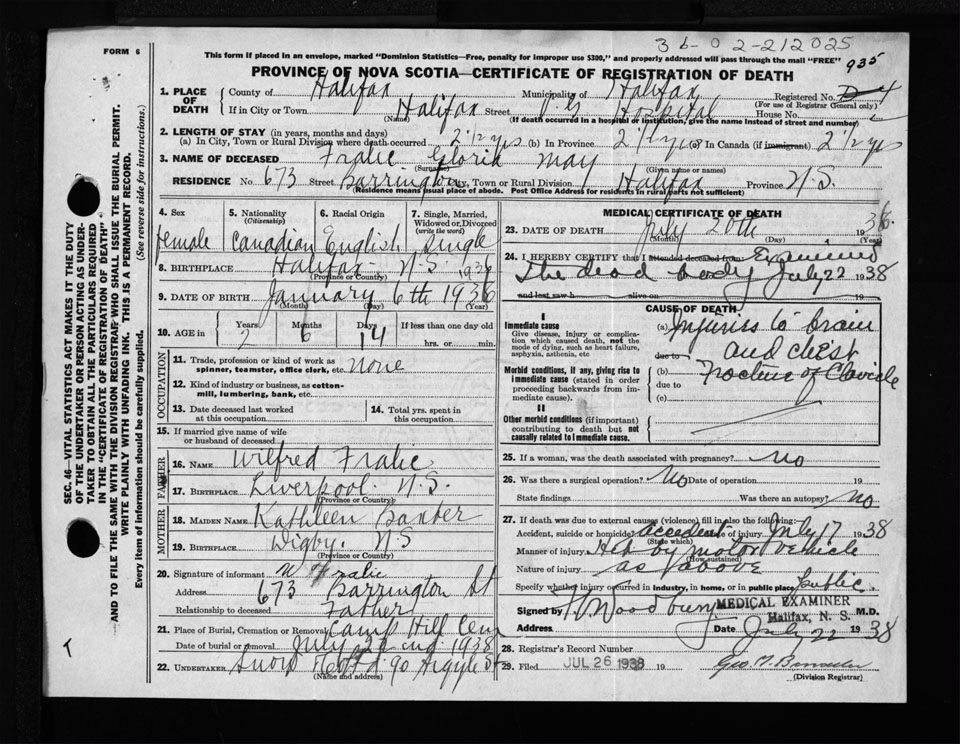 36-02-212025
FORM 6
This form if placed in an envelope, marked "Dominion Statistics—Free, penalty for improper use $300," and properly addressed will pass through the mail "FREE"
935
PROVINCE OF NOVA SCOTIA—CERTIFICATE OF REGISTRATION OF DEATH
1. PLACE OF DEATH County of Halifax Municipality of Halifax Registered No.
(For use of Registrar General only)
If in City or Town Halifax Street V.G Hospital House No.
(Name) (If death occurred in a hospital or institution, give the name instead of street and number)
2. LENGTH OF STAY (in years, months and days)
(a) In City, Town or Rural Division where death occurred 2 1/2 yrs (b) In Province 2 1/2 yrs (c) In Canada (if immigrant) 2 1/2 yrs
3. NAME OF DECEASED Fralic Gloria May
(Surname) (Given name or names)
RESIDENCE No. 673 Street Barrington City, Town or Rural Division Halifax Province N.S.
(Residence means usual place of abode. Post Office Address for residents in rural parts not sufficient)
4. Sex
female
5. Nationality
(Citizenship)
Canadian
6. Racial Origin
English
7. Single, Married, Widowed or Divorced
(write the word)
Single
8. BIRTHPLACE Halifax N.S.
(Province or Country)
9. DATE OF BIRTH January 6th 1936
(Month) (Day) (Year)
10. AGE in Years Months Days If less than one day old
2 6 14 hrs. or min.
OCCUPATION
11. Trade, profession or kind of work as spinner, teamster, office clerk, etc. None
12. Kind of industry or business, as cotton-mill, lumbering, bank, etc.
13. Date deceased last worked at this occupation
14. Total yrs. spent in this occupation
15. If married give name of wife or husband of deceased
FATHER
16. NAME Wilfred Fralic
17. BIRTHPLACE Liverpool N.S.
(Province or Country)
MOTHER
18. MAIDEN NAME Kathleen Baxter
19. BIRTHPLACE Digby N.S
(Province or Country)
20. Signature of informant W Fralic
Address 673 Barrington St
Relationship to deceased Father
21. Place of Burial, Cremation or Removal Camp Hill Cem
Date of burial or removal July 22nd 1938
22. UNDERTAKER Snow & Co Ltd 90 Argyle St
(Name and address)
MEDICAL CERTIFICATE OF DEATH
23. DATE OF DEATH July 20th 1938
(Month) (Day) (Year)
24. I HEREBY CERTIFY that I attended deceased from Examined
The dead body July 22 1938
and last saw h alive on 19
CAUSE OF DEATH
I
Immediate cause
Give disease, injury or complication which caused death, not the mode of dying, such as heart failure, asphyxia, asthenia, etc
Morbid conditions, if any, giving rise to immediate cause (stated in order proceeding backwards from immediate cause).
II
Other morbid conditions (if important) contributing to death but not causally related to immediate cause.
(a) Injuries to brain
due to and chest
(b) Fracture of Clavicle
due to
(c)
25. If a woman, was the death associated with pregnancy? No
26. Was there a surgical operation? No Date of operation 19
State findings Was there an autopsy? No
27. If death was due to external causes (violence) fill in also the following:
Accident, suicide or homicide? accident Date of injury July 17 1938
(State which)
Manner of injury Hit by motor vehicle
(How sustained)
Nature of injury as above
Specify whether injury occurred in industry, in home, or in public place public
Signed by Woodbury M.D.
MEDICAL EXAMINER
Halifax, N. S.
Address Date July 22 1938
28. Registrar's Record Number
29. Filed JUL 26 1938 19
(Division Registrar)
SEC. 46—VITAL STATISTICS ACT MAKES IT THE DUTY
OF THE UNDERTAKER OR PERSON ACTING AS UNDER-
TAKER TO OBTAIN ALL THE PARTICULARS REQUIRED
IN THE "CERTIFICATE OF REGISTRATION OF DEATH"
AND TO FILE THE SAME WITH THE DIVISION REGISTRAR WHO SHALL ISSUE THE BURIAL PERMIT.
WRITE PLAINLY WITH UNFADING INK. THIS IS A PERMANENT RECORD.
Every item of information should be carefully supplied. (See reverse side for instructions.)